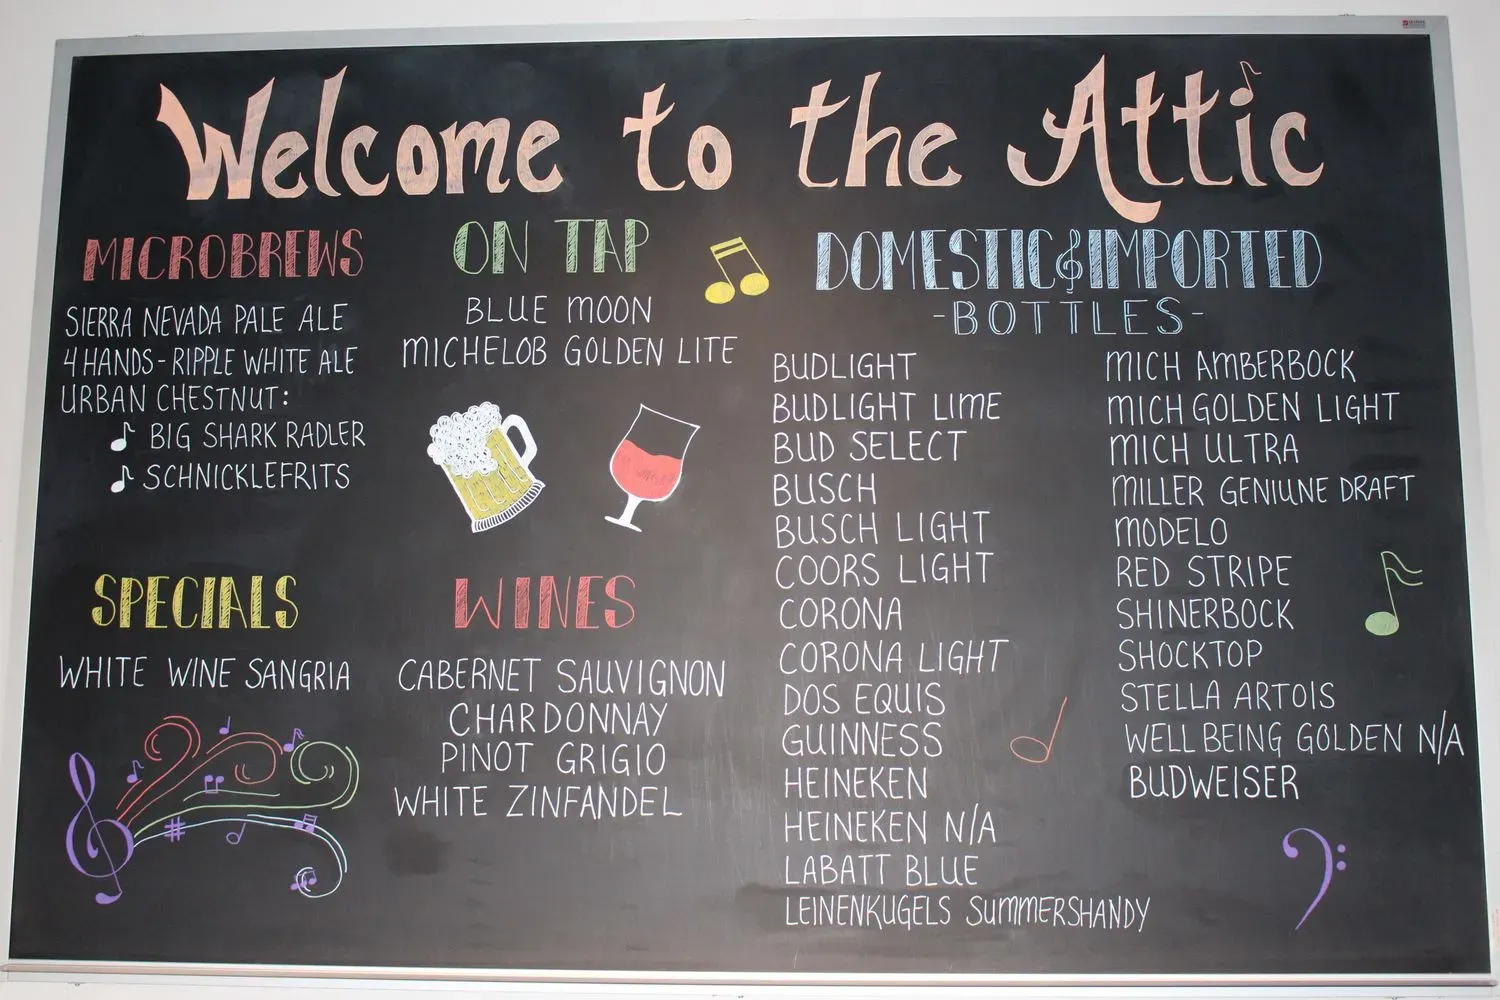 Welcome to the Attic
MICROBREWS
SIERRA NEVADA PALE ALE
4 HANDS - RIPPLE WHITE ALE
URBAN CHESTNUT:
BIG SHARK RADLER
SCHNICKLEFRITS
ON TAP
BLUE MOON
MICHELOB GOLDEN LITE
SPECIALS
WHITE WINE SANGRIA
WINES
CABERNET SAUVIGNON
CHARDONNAY
PINOT GRIGIO
WHITE ZINFANDEL
DOMESTIC & IMPORTED
-BOTTLES-
BUDLIGHT
BUDLIGHT LIME
BUD SELECT
BUSCH
BUSCH LIGHT
COORS LIGHT
CORONA
CORONA LIGHT
DOS EQUIS
GUINNESS
HEINEKEN
HEINEKEN N/A
LABATT BLUE
LEINENKUGELS SUMMERSHANDY
MICH AMBERBOCK
MICH GOLDEN LIGHT
MICH ULTRA
MILLER GENIUNE DRAFT
MODELO
RED STRIPE
SHINERBOCK
SHOCKTOP
STELLA ARTOIS
WELL BEING GOLDEN N/A
BUDWEISER